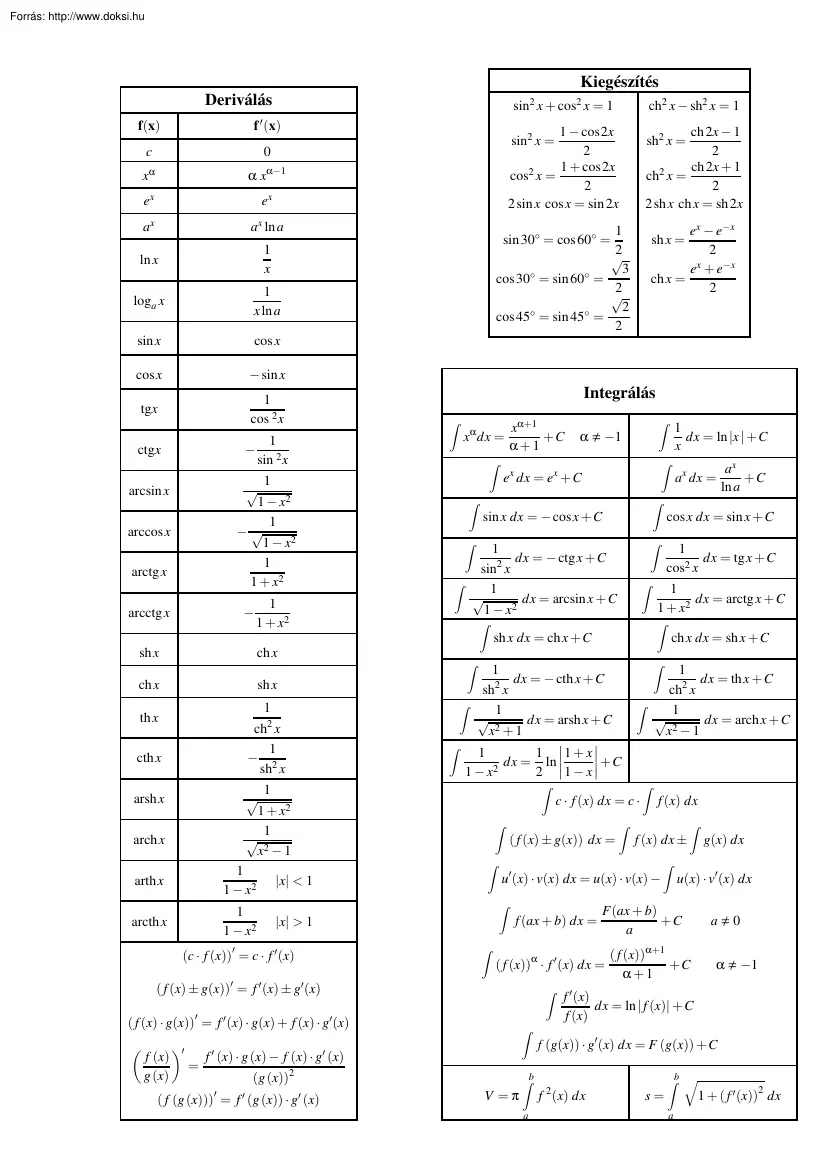 Forrás: http://www.doksi.hu
Deriválás
f(x) f′(x)
c 0
x^α α x^(α−1)
e^x e^x
a^x a^x ln a
ln x 1/x
log_a x 1/(x ln a)
sin x cos x
cos x − sin x
tg x 1/cos ²x
ctg x −1/sin ²x
arcsin x 1/√(1−x²)
arccos x −1/√(1−x²)
arctg x 1/(1+x²)
arcctg x −1/(1+x²)
sh x ch x
ch x sh x
th x 1/ch² x
cth x −1/sh² x
arsh x 1/√(1+x²)
arch x 1/√(x²−1)
arth x 1/(1−x²) |x| < 1
arcth x 1/(1−x²) |x| > 1
(c · f(x))′ = c · f′(x)
(f(x) ± g(x))′ = f′(x) ± g′(x)
(f(x) · g(x))′ = f′(x) · g(x) + f(x) · g′(x)
(f(x)/g(x))′ = (f′(x) · g(x) − f(x) · g′(x))/(g(x))²
(f(g(x)))′ = f′(g(x)) · g′(x)
Kiegészítés
sin² x + cos² x = 1 ch² x − sh² x = 1
sin² x = (1 − cos 2x)/2 sh² x = (ch 2x − 1)/2
cos² x = (1 + cos 2x)/2 ch² x = (ch 2x + 1)/2
2 sin x cos x = sin 2x 2 sh x ch x = sh 2x
sin 30° = cos 60° = 1/2 sh x = (e^x − e^(−x))/2
cos 30° = sin 60° = √3/2 ch x = (e^x + e^(−x))/2
cos 45° = sin 45° = √2/2
Integrálás
∫ x^α dx = x^(α+1)/(α+1) + C α ≠ −1 ∫ 1/x dx = ln |x| + C
∫ e^x dx = e^x + C ∫ a^x dx = a^x/ln a + C
∫ sin x dx = − cos x + C ∫ cos x dx = sin x + C
∫ 1/sin² x dx = − ctg x + C ∫ 1/cos² x dx = tg x + C
∫ 1/√(1−x²) dx = arcsin x + C ∫ 1/(1+x²) dx = arctg x + C
∫ sh x dx = ch x + C ∫ ch x dx = sh x + C
∫ 1/sh² x dx = − cth x + C ∫ 1/ch² x dx = th x + C
∫ 1/√(x²+1) dx = arsh x + C ∫ 1/√(x²−1) dx = arch x + C
∫ 1/(1−x²) dx = 1/2 ln |(1+x)/(1−x)| + C
∫ c · f(x) dx = c · ∫ f(x) dx
∫ (f(x) ± g(x)) dx = ∫ f(x) dx ± ∫ g(x) dx
∫ u′(x) · v(x) dx = u(x) · v(x) − ∫ u(x) · v′(x) dx
∫ f(ax + b) dx = F(ax + b)/a + C a ≠ 0
∫ (f(x))^α · f′(x) dx = (f(x))^(α+1)/(α+1) + C α ≠ −1
∫ f′(x)/f(x) dx = ln |f(x)| + C
∫ f(g(x)) · g′(x) dx = F(g(x)) + C
V = π ∫_a^b f²(x) dx s = ∫_a^b √(1 + (f′(x))²) dx